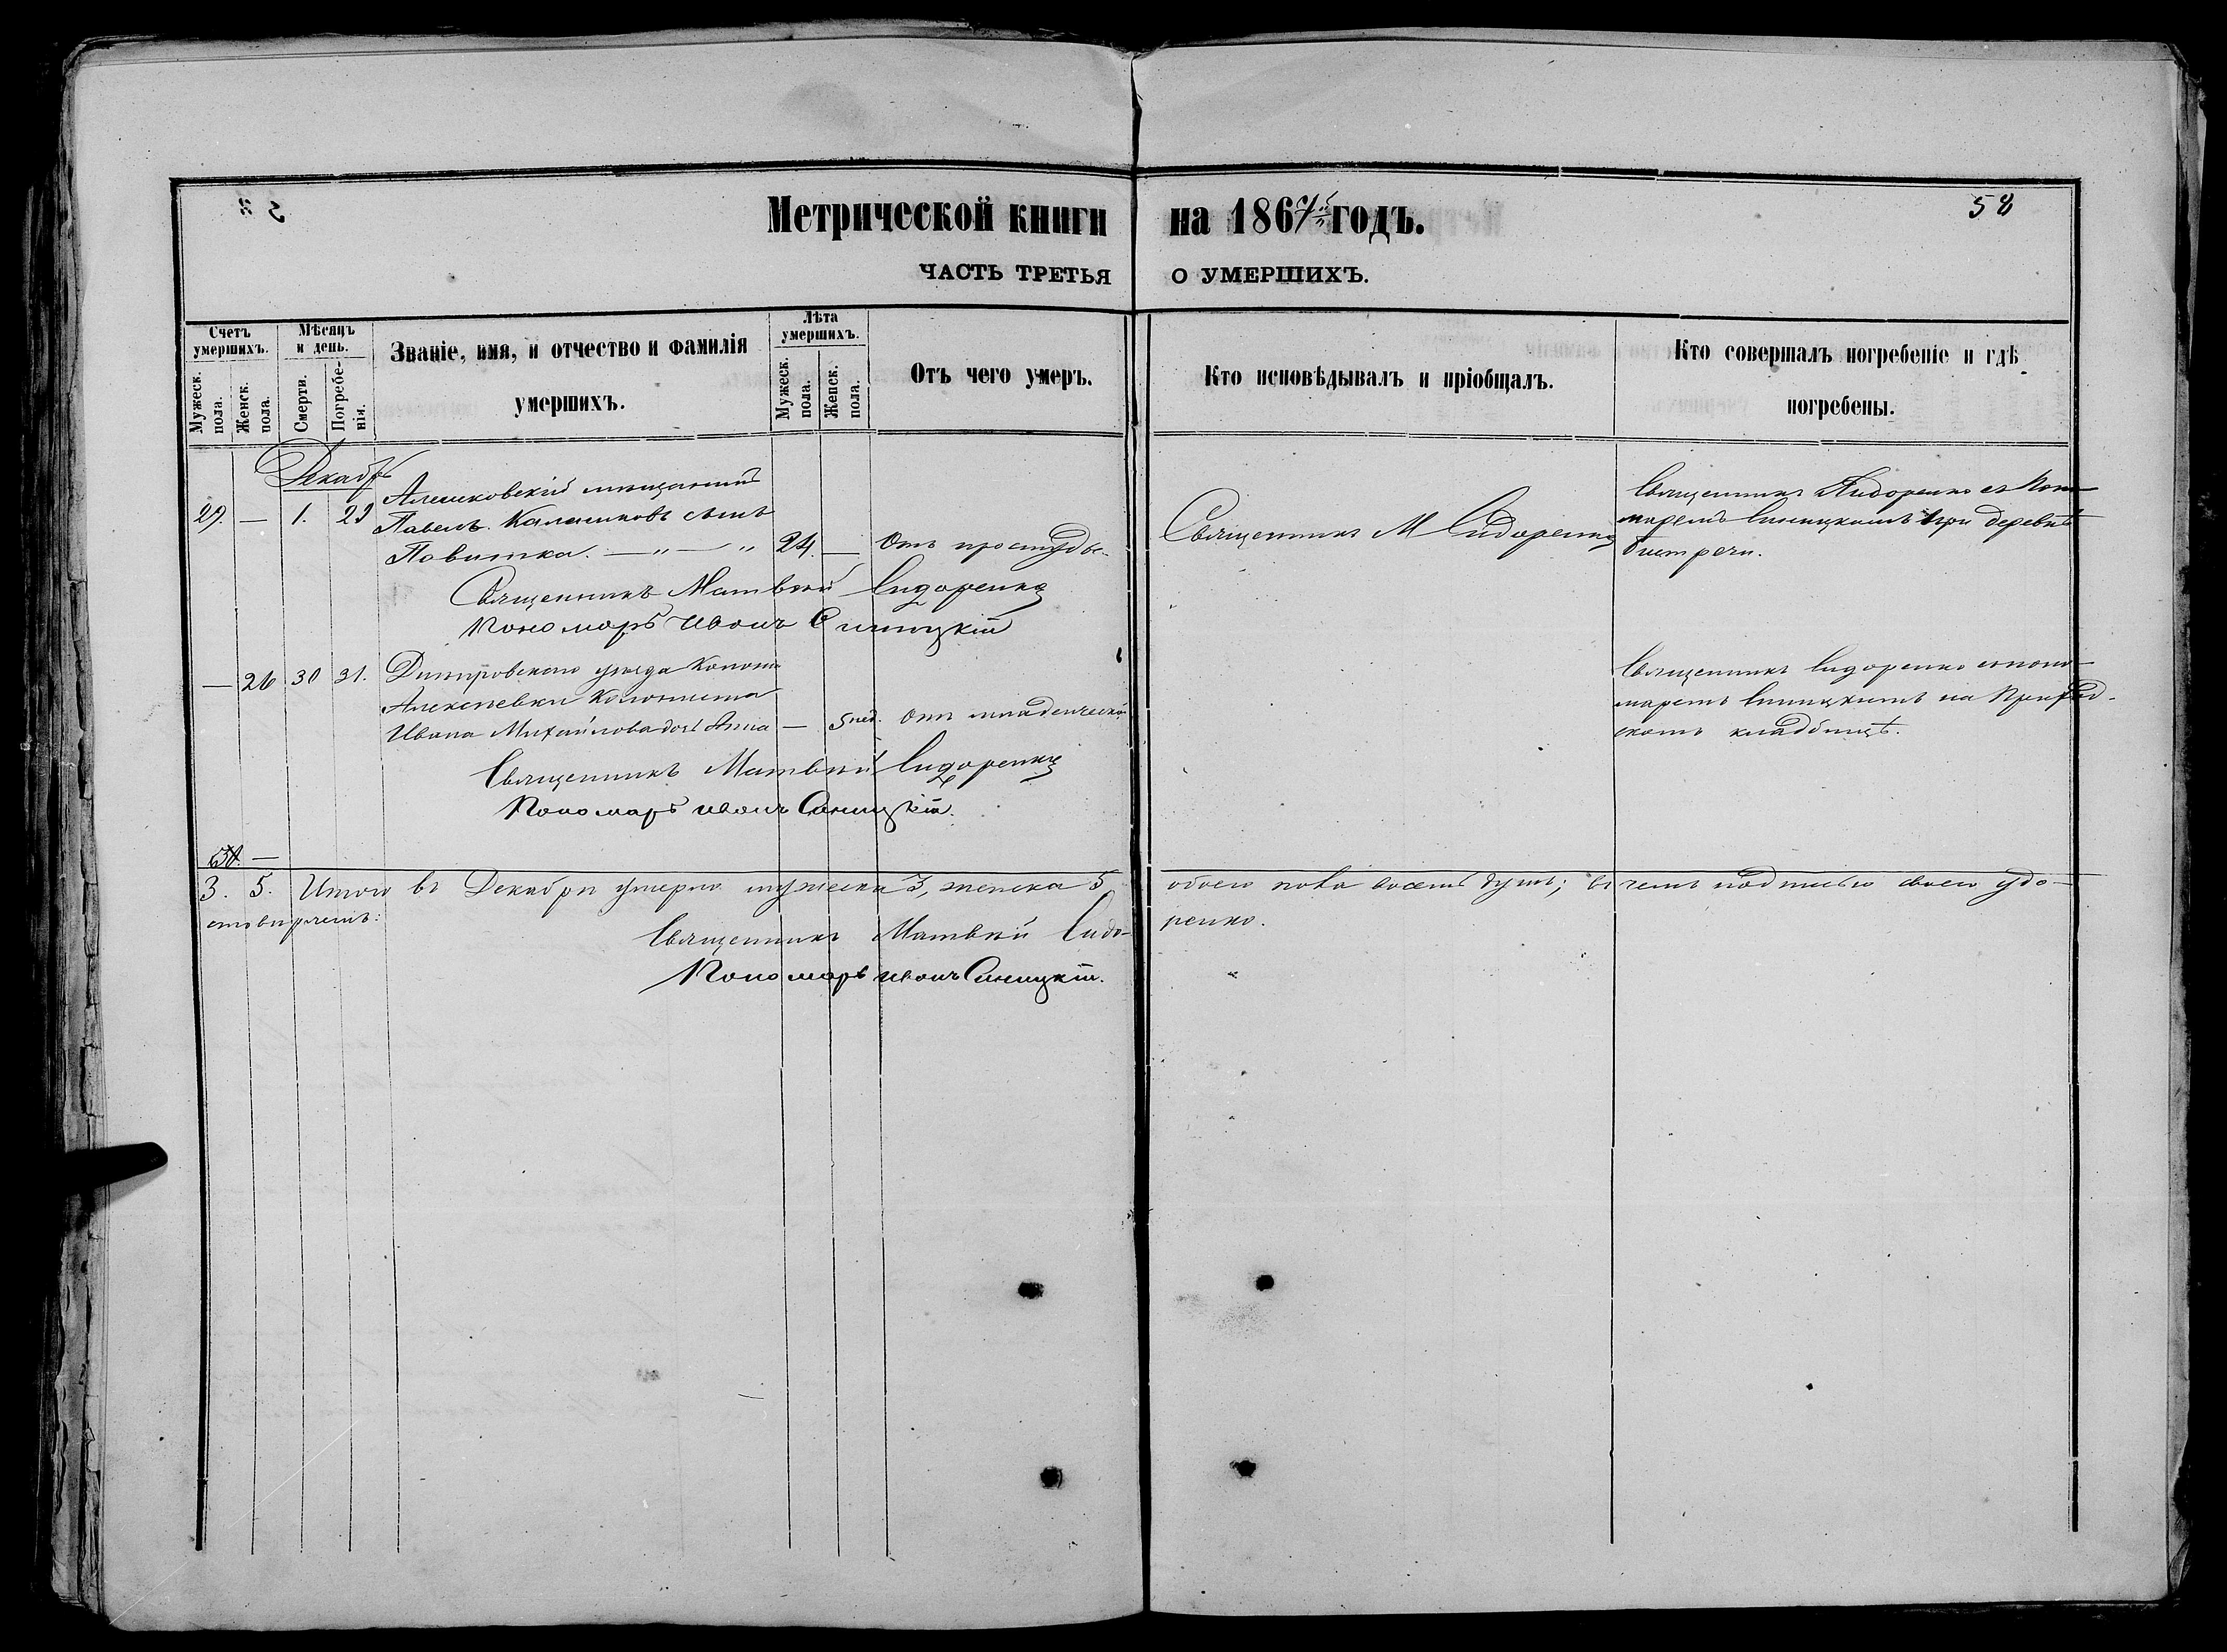 Метрической книги на 1867й годъ.
58
ЧАСТЬ ТРЕТЬЯ О УМЕРШИХЪ.
Счетъ умершихъ.
Мужеск. пола.
Женск. пола.
Мѣсяцъ и день.
Смерти.
Погребенія.
Званіе, имя, и отчество и фамилія
умершихъ.
Лѣта умершихъ.
Мужеск. пола.
Женск. пола.
Отъ чего умеръ.
Кто исповѣдывалъ и пріобщалъ.
Кто совершалъ погребеніе и гдѣ
погребены.
Декабрь
29. — 1. 23
Алешковскій мѣщанинъ
Павелъ Калашниковъ сынъ
24. — Отъ простуды.
Священникъ М Сидоренко
Священникъ Сидоренко съ поно-
маремъ Синицкимъ при деревнѣ
Священникъ Матвѣй Сидоренко
Пономарь Иванъ Синицкій
— 26 30 31.
Днепровскаго уѣзда Колоніи
Алексѣевки Колониста
Ивана Михайлова дочь Анна — 5 нед. Отъ младенческой
Священникъ Сидоренко съ поно-
маремъ Синицкимъ на Приход-
скомъ кладбищѣ.
Священникъ Матвѣй Сидоренко
Пономарь Иванъ Синицкій.
3. 5. Итого въ Декабрѣ умерло мужеска 3, женска 5 обоего пола восемь душъ; въ чемъ подписью своею удо-
стовѣряемъ:
Священникъ Матвѣй Сидо-ренко.
Пономарь Иванъ Синицкій.